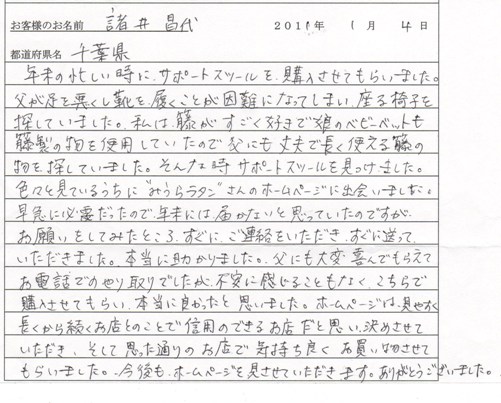 お客様のお名前 諸井昌代 2011年 1月 4日
都道府県名 千葉県
年末の忙しい時に、サポートスツールを、購入させてもらいました。
父が足を悪くし靴を、履くことが困難になってしまい、座る椅子を
探していました。私は、籐がすごく好きで娘のベビーベットも
籐製の物を使用していたので父にも丈夫で長く使える籐の
物を探していました。そんな時サポートスツールを見つけました。
色々と見ているうちに"みうらラタン"さんのホームページに出会いました。
早急に必要だったので、年末には、届かないと思っていたのですが、
お願いをしてみたところ、すぐに、ご連絡をいただき、すぐに送って、
いただきました。本当に助かりました。父にも大変喜んでもらえて
お電話でのやり取りでしたが、不安に感じることもなく、こちらで
購入させてもらい、本当に良かったと思いました。ホームページは、見やすく
長くから続くお店とのことで信用のできるお店だと思い、決めさせて
いただき、そして思った通りのお店で気持ち良くお買い物させて
もらいました。今後も、ホームページを見させていただきます。ありがとうございました。